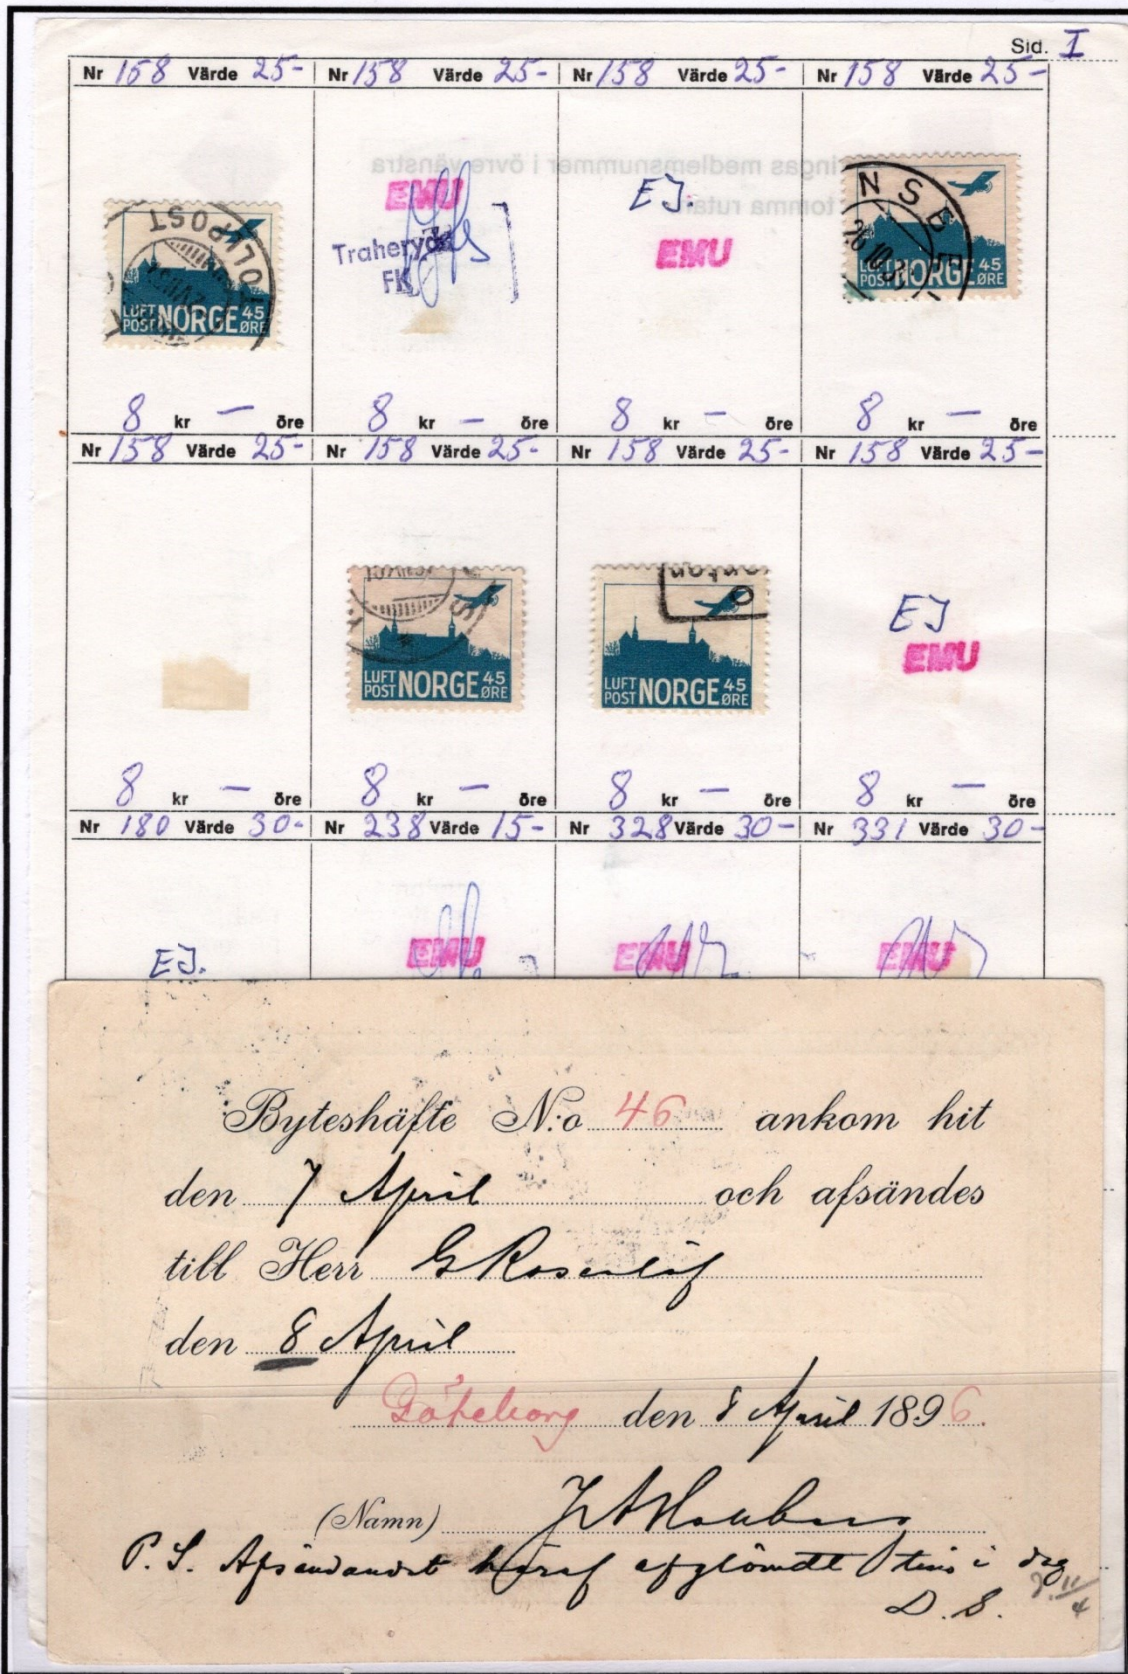 Sid. I
Nr 158 Värde 25- Nr 158 Värde 25- Nr 158 Värde 25- Nr 158 Värde 25-
EMU
Traheryds
FK
EJ.
EMU
LUFT POST NORGE 45 ØRE
LUFT POST NORGE 45 ØRE
8 kr - öre 8 kr - öre 8 kr - öre 8 kr - öre
Nr 158 Värde 25- Nr 158 Värde 25- Nr 158 Värde 25- Nr 158 Värde 25-
LUFT POST NORGE 45 ØRE
LUFT POST NORGE 45 ØRE
EJ
EMU
8 kr - öre 8 kr - öre 8 kr - öre 8 kr - öre
Nr 180 Värde 30- Nr 238 Värde 15- Nr 328 Värde 30- Nr 331 Värde 30-
EJ. EMU EMU EMU
Byteshäfte N:o 46 ankom hit
den 7 April och afsändes
till Herr G Rosenlöf
den 8 April
Göteborg den 8 April 1896.
(Namn)
P.S. Afsändandet häraf afglömdt i dag
D.S.
11/4